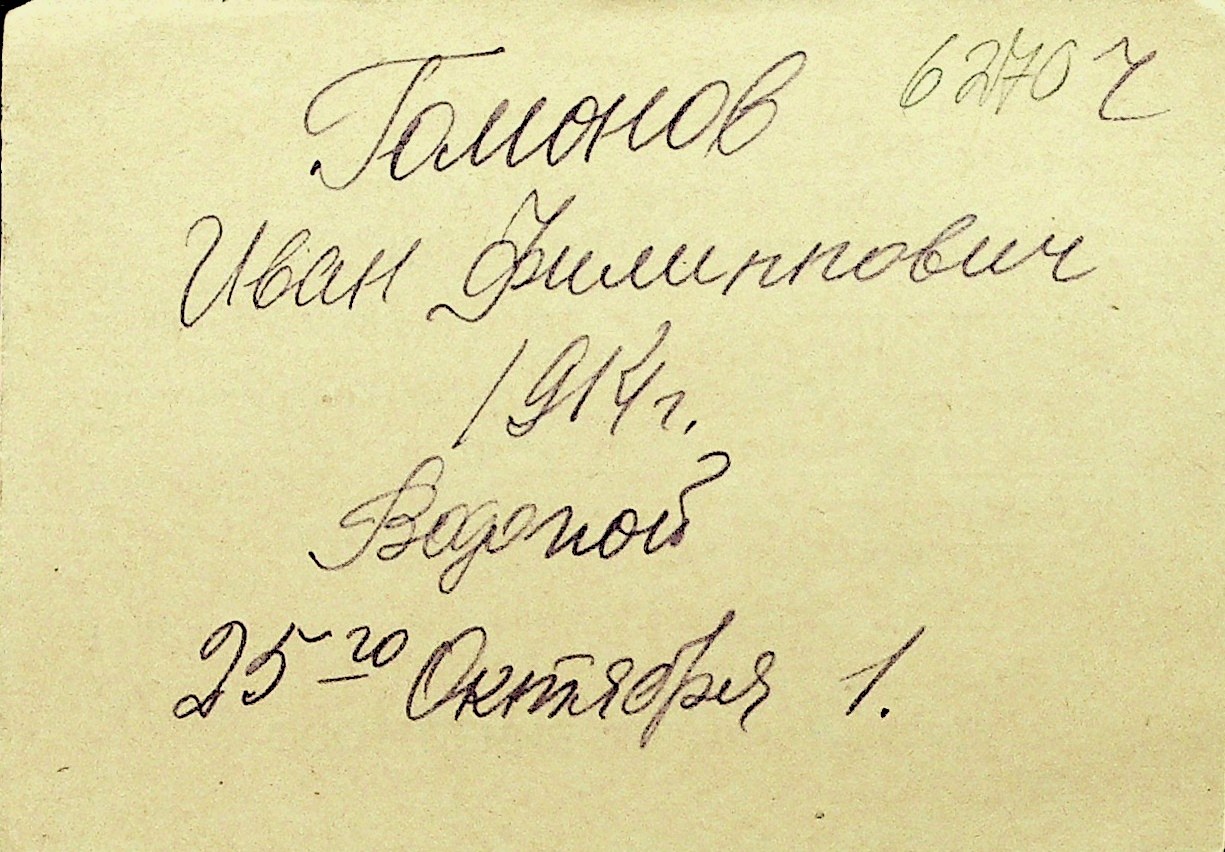 Гомонов 6270 ч
Иван Филиппович
1914 г.
Водопой
25 го Октября 1.